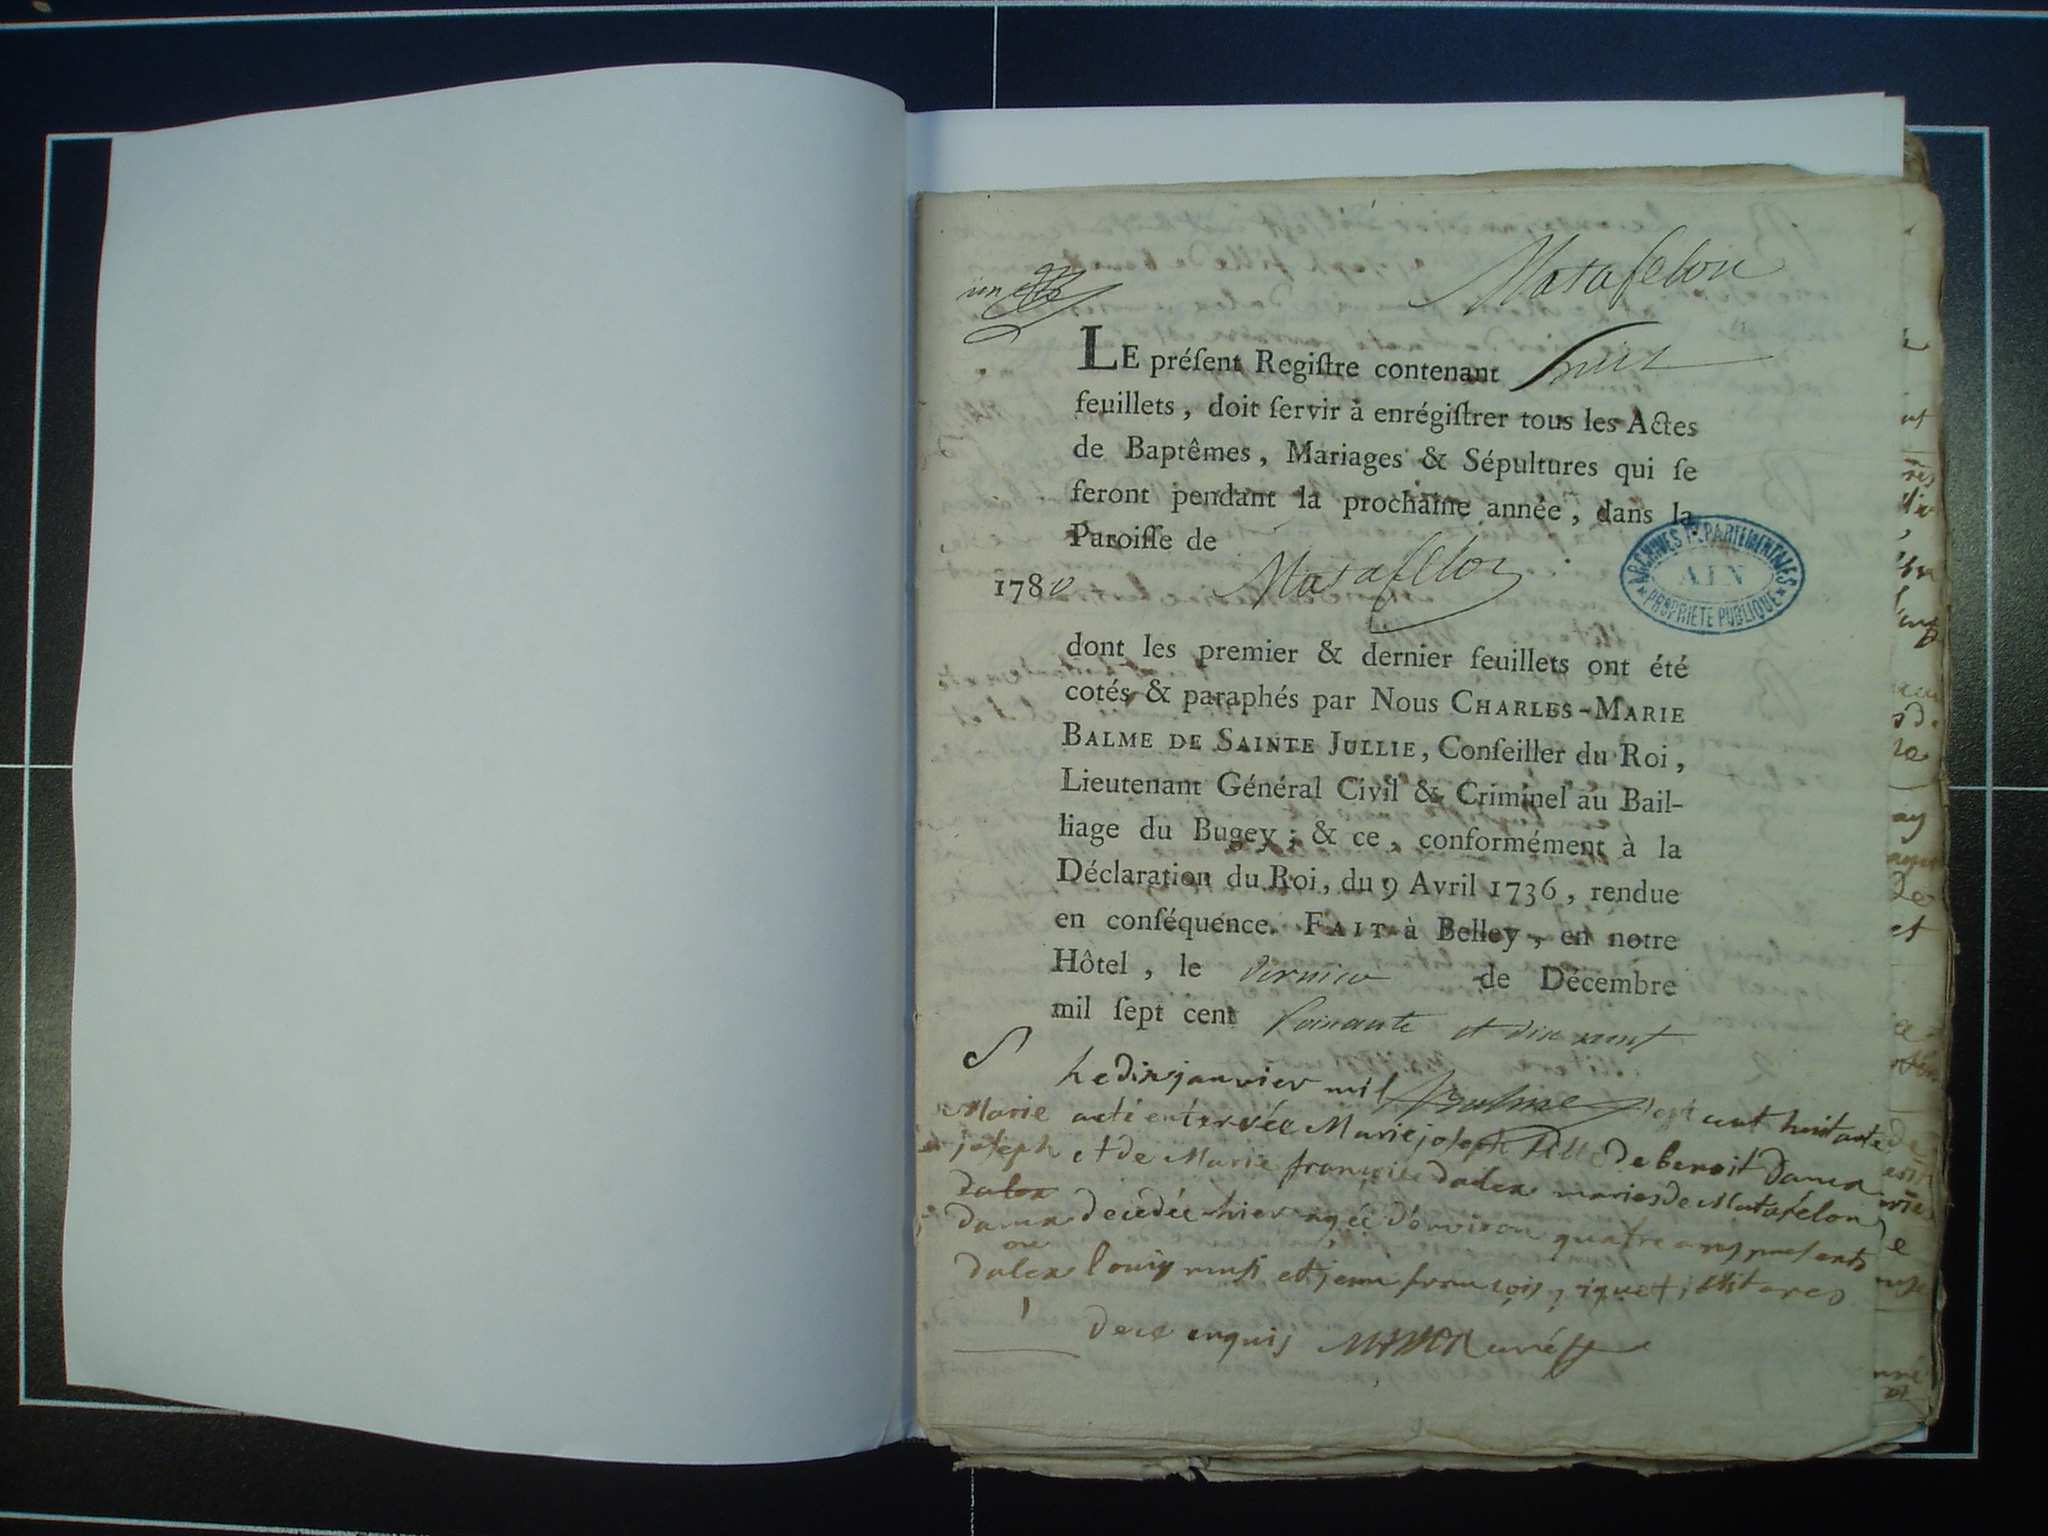 Matafelon
un
LE préſent Regiſtre contenant huit
feuillets, doit ſervir à enrégiſtrer tous les Actes
de Baptêmes, Mariages & Sépultures qui ſe
feront pendant la prochaine année, dans la
Paroiſſe de
1780 Matafelon
ARCHIVES DÉPARTEMENTALES
AIN
PROPRIÉTÉ PUBLIQUE
dont les premier & dernier feuillets ont été
cotés & paraphés par Nous CHARLES-MARIE
BALME DE SAINTE JULLIE, Conſeiller du Roi,
Lieutenant Général Civil & Criminel au Bail-
liage du Bugey; & ce, conformément à la
Déclaration du Roi, du 9 Avril 1736, rendue
en conſéquence. FAIT à Belley, en notre
Hôtel, le dernier de Décembre
mil ſept cent soixante et dix neuf
S
Balme
Le dix janvier mil sept cent huitante
a été enterrée Marie joseph fille de benoit Danea
et de Marie françoise dalex mariés de Matafélon
décédée hier agée d'environ quatre ans presents
louis et jean françois illiteres
de ce enquis curé
Marie
joseph
dalex